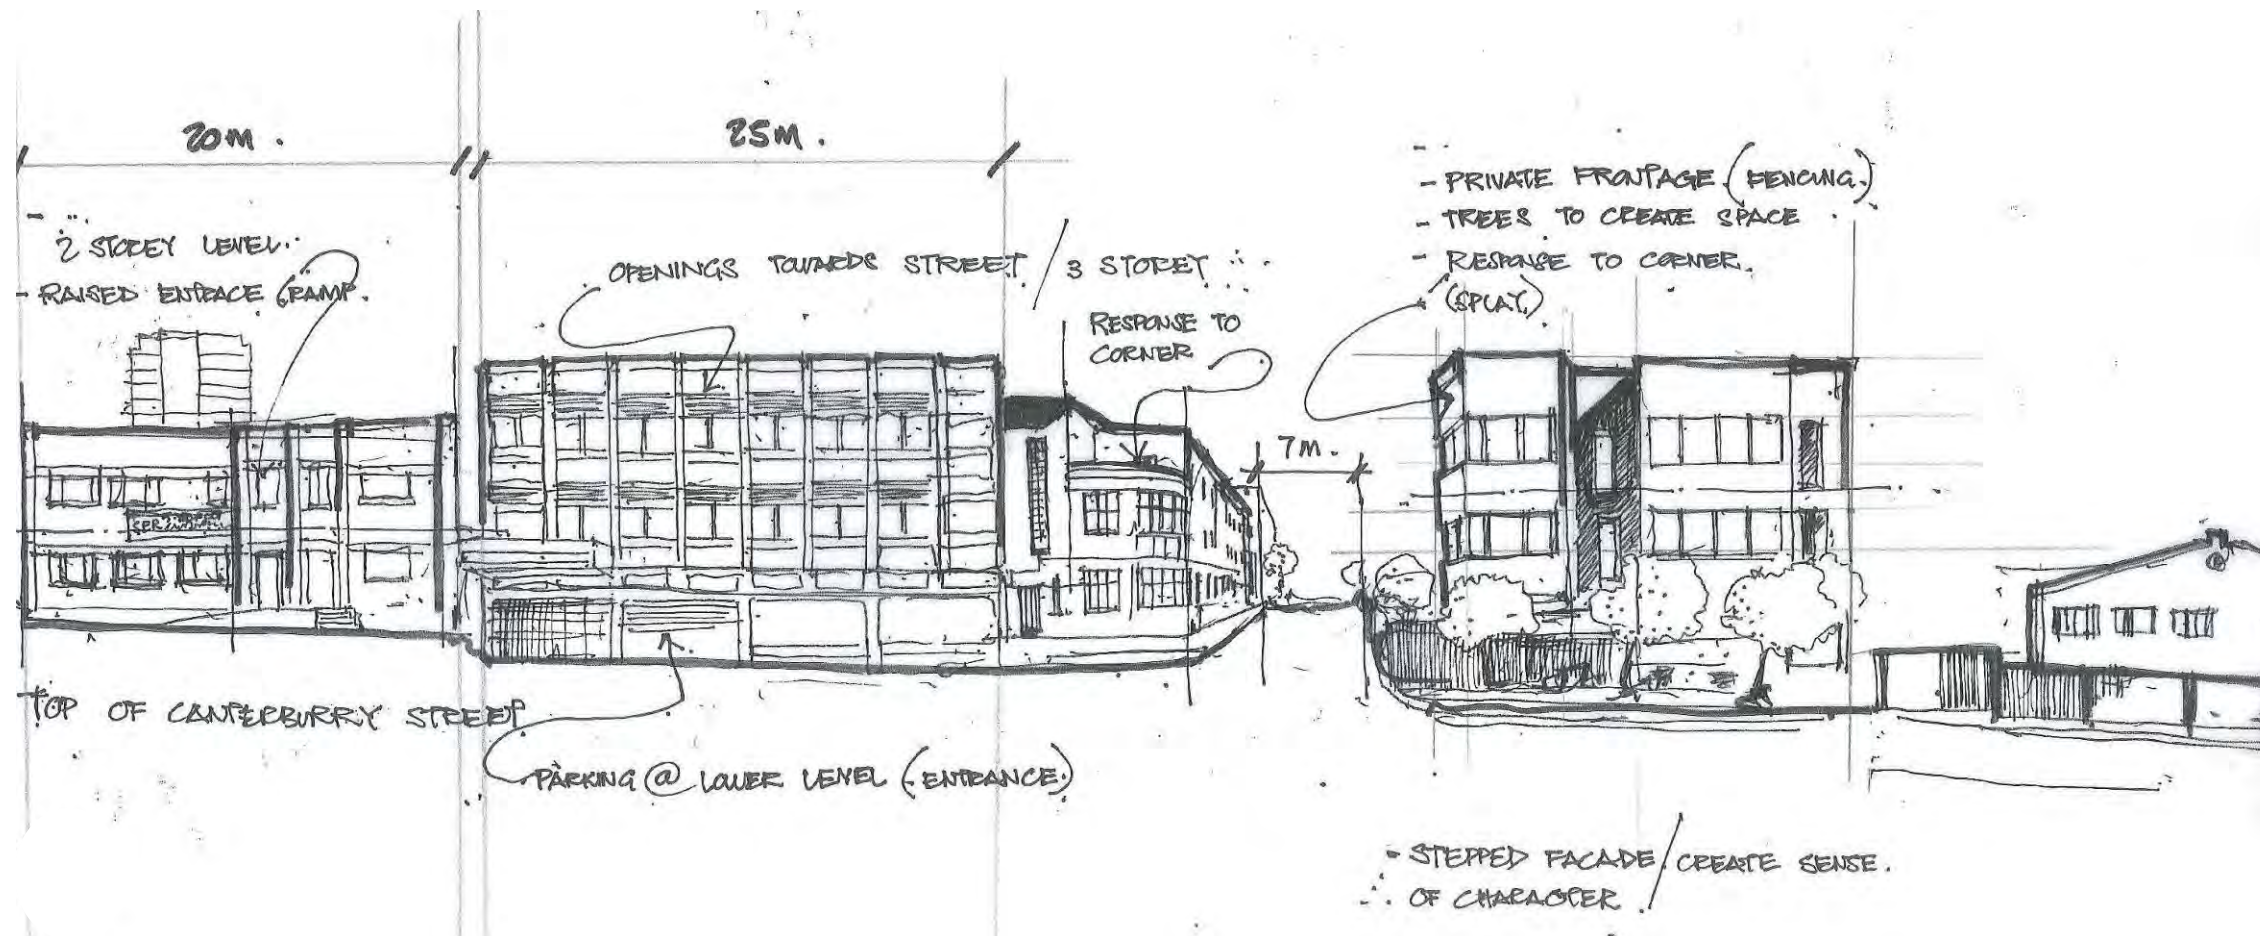 20M.
25M.
2 STOREY LEVEL.
- RAISED ENTRACE (RAMP.
OPENINGS TOWARDS STREET / 3 STOREY
RESPONSE TO
CORNER
7M.
- PRIVATE FRONTAGE (FENCING.)
- TREES TO CREATE SPACE
- RESPONSE TO CORNER.
(SPLAY.)
TOP OF CANTERBURRY STREET
PARKING @ LOWER LEVEL (ENTRANCE.)
- STEPPED FACADE / CREATE SENSE.
OF CHARACTER.